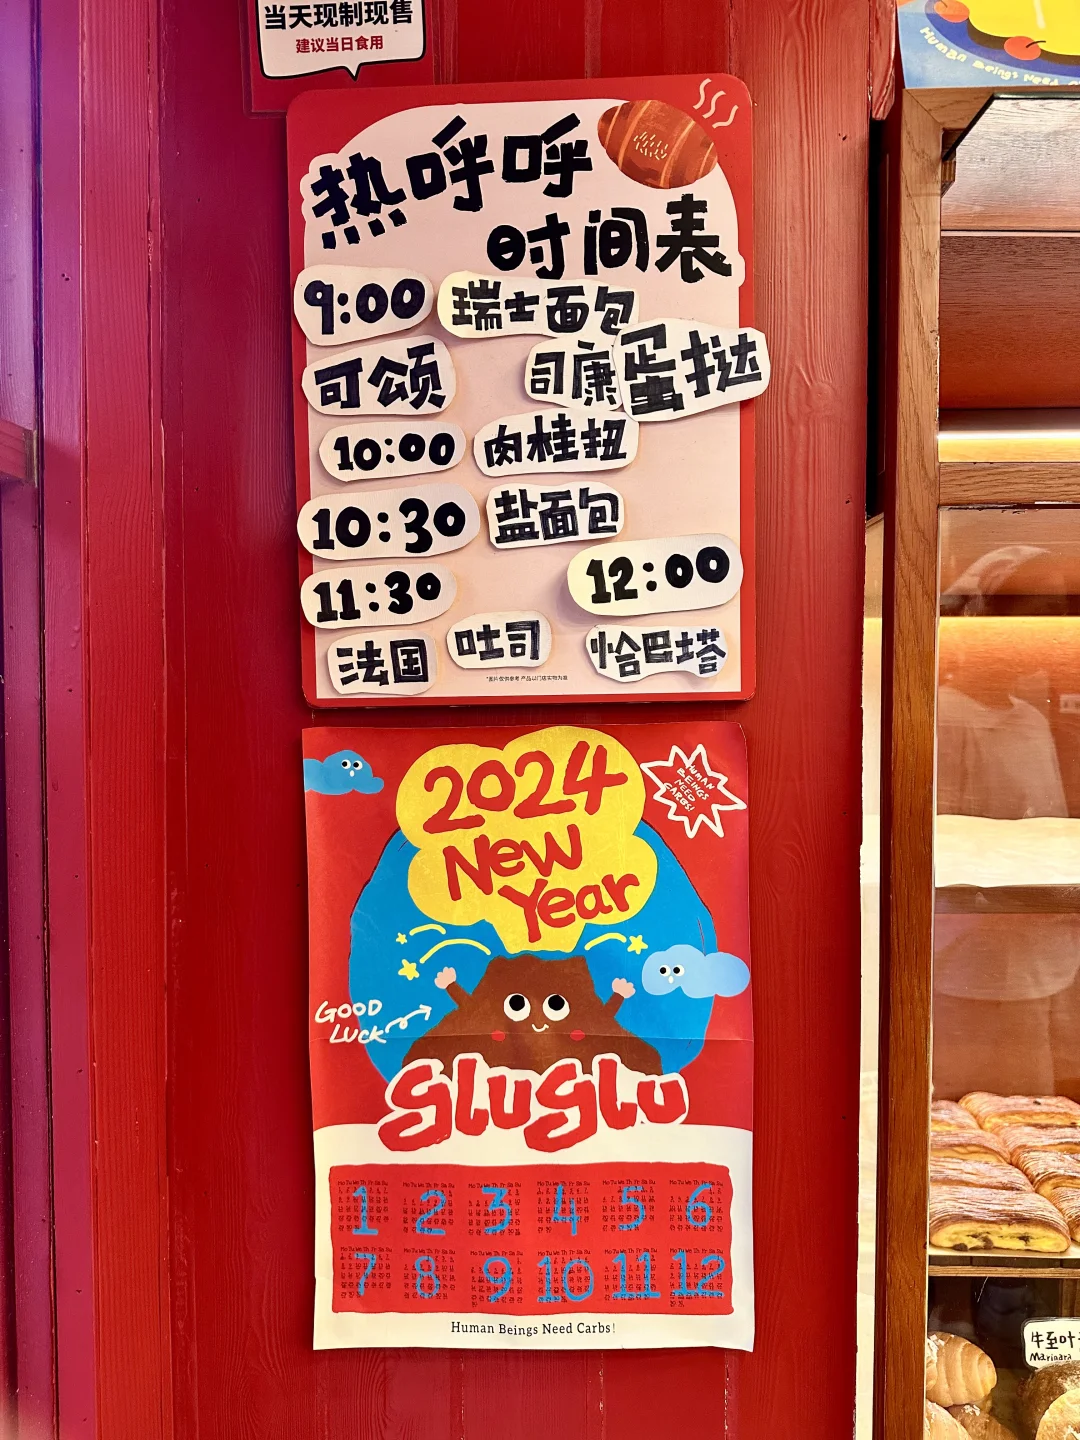 当天现制现售
建议当日食用
Human Beings Need
热呼呼
时间表
9:00 瑞士面包
可颂 司康 蛋挞
10:00 肉桂扭
10:30 盐面包
11:30 12:00
法国 吐司 恰巴塔
*图片仅供参考 产品以门店实物为准
2024
New
Year
HUMAN
BEINGS
NEED
CARBS!
GOOD
LUCK
gluglu
1 2 3 4 5 6
7 8 9 10 11 12
Human Beings Need Carbs!
牛至叶
Marinara